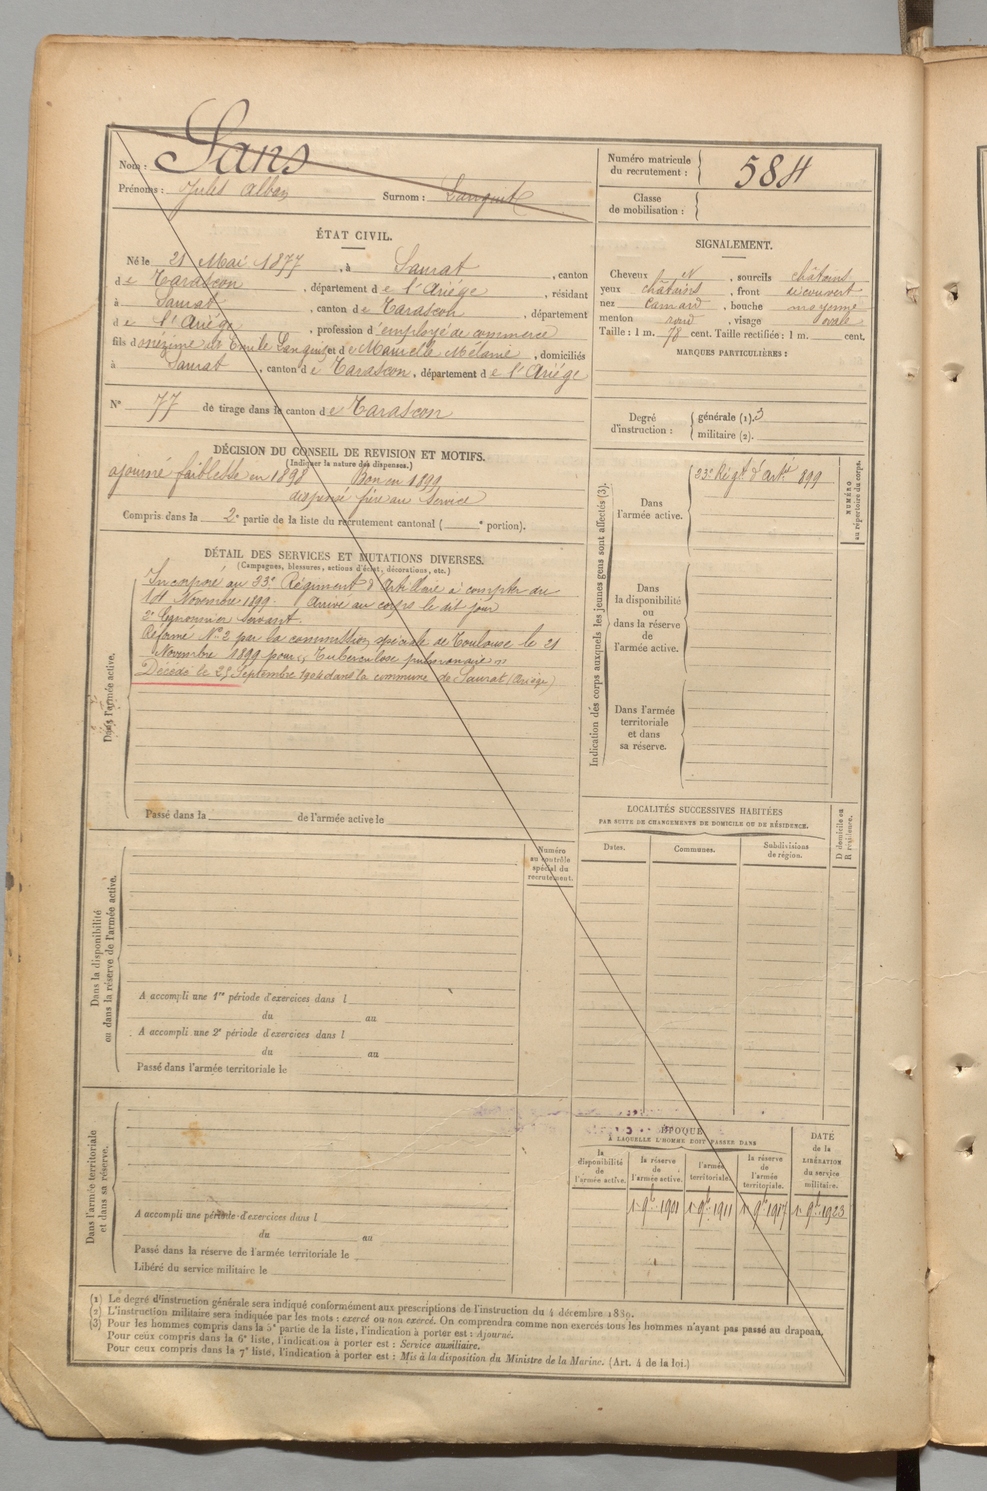 Nom : Sans
Prénoms : Jules Alban Surnom :
Numéro matricule du recrutement : 584
Classe de mobilisation :
ÉTAT CIVIL.
Né le 21 Mai 1877, à Saurat, canton
de Tarascon, département de l'Ariège, résidant
à Saurat, canton de Tarascon, département
de l'Ariège, profession d'employé de commerce
fils d'onézime et de Mélanie, domiciliés
à Saurat, canton de Tarascon, département de l'Ariège
N° 77 de tirage dans le canton de Tarascon
SIGNALEMENT.
Cheveux, sourcils châtains
yeux châtains, front découvert
nez camard, bouche moyenne
menton rond, visage ovale
Taille : 1 m. 78 cent. Taille rectifiée : 1 m. cent.
MARQUES PARTICULIÈRES :
Degré d'instruction : générale (1). 3
militaire (2).
DÉCISION DU CONSEIL DE REVISION ET MOTIFS.
(Indiquer la nature des dispenses.)
ajourné faiblesse en 1898 Bon en 1899
dispensé frère au service
Compris dans la 2e partie de la liste du recrutement cantonal ( e portion).
DÉTAIL DES SERVICES ET MUTATIONS DIVERSES.
(Campagnes, blessures, actions d'éclat, décorations, etc.)
Dans l'armée active.
Incorporé au 23e Régiment d'Artillerie à compter du
14 Novembre 1899. Arrivé au corps le dit jour
2e Canonnier Servant.
Réformé N° 2 par la commission spéciale de Toulouse le 21
Novembre 1899 pour « Tuberculose pulmonaire »
Décédé le 25 Septembre 1904 dans la commune de Saurat (Ariège)
Passé dans la de l'armée active le
Indication des corps auxquels les jeunes gens sont affectés (3).
NUMÉRO au répertoire du corps.
Dans l'armée active.
23e Régt d'artie 899
Dans la disponibilité ou dans la réserve de l'armée active.
Dans l'armée territoriale et dans sa réserve.
LOCALITÉS SUCCESSIVES HABITÉES
PAR SUITE DE CHANGEMENTS DE DOMICILE OU DE RÉSIDENCE.
Dates. Communes. Subdivisions de région.
D domicile ou R résidence.
Dans la disponibilité ou dans la réserve de l'armée active.
Numéro au contrôle spécial du recrutement.
A accompli une 1re période d'exercices dans l
du au
A accompli une 2e période d'exercices dans l
du au
Passé dans l'armée territoriale le
Dans l'armée territoriale et dans sa réserve.
A accompli une période d'exercices dans l
du au
Passé dans la réserve de l'armée territoriale le
Libéré du service militaire le
ÉPOQUE
À LAQUELLE L'HOMME DOIT PASSER DANS
la disponibilité de l'armée active.
la réserve de l'armée active.
l'armée territoriale.
la réserve de l'armée territoriale.
DATE de la LIBÉRATION du service militaire.
1er 9bre 1901 1er 9bre 1911 1er 9bre 1917 1er 9bre 1923
(1) Le degré d'instruction générale sera indiqué conformément aux prescriptions de l'instruction du 4 décembre 1889.
(2) L'instruction militaire sera indiquée par les mots : exercé ou non exercé. On comprendra comme non exercés tous les hommes n'ayant pas passé au drapeau.
(3) Pour les hommes compris dans la 5e partie de la liste, l'indication à porter est : Ajourné.
Pour ceux compris dans la 6e liste, l'indication à porter est : Service auxiliaire.
Pour ceux compris dans la 7e liste, l'indication à porter est : Mis à la disposition du Ministre de la Marine. (Art. 4 de la loi.)